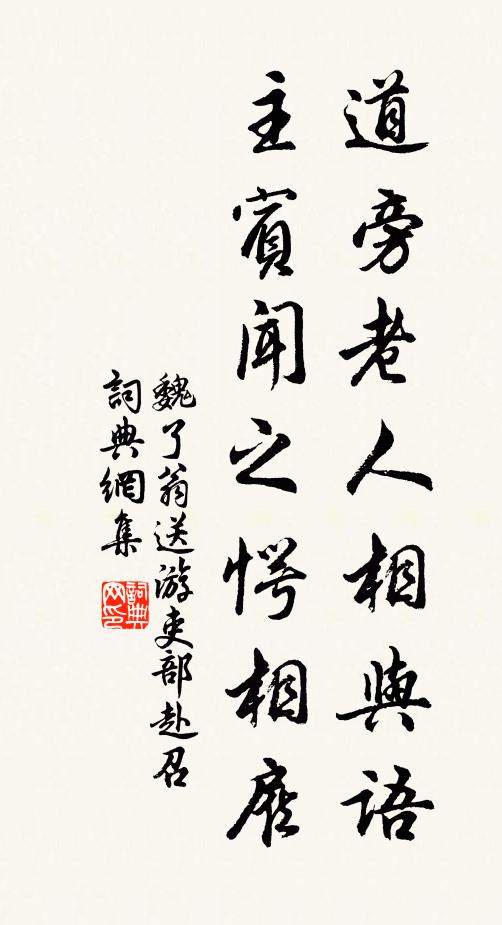 道旁老人相與語
主賓聞之愕相顧
魏了翁送游吏部赴召
詞典網集
詞典
网印